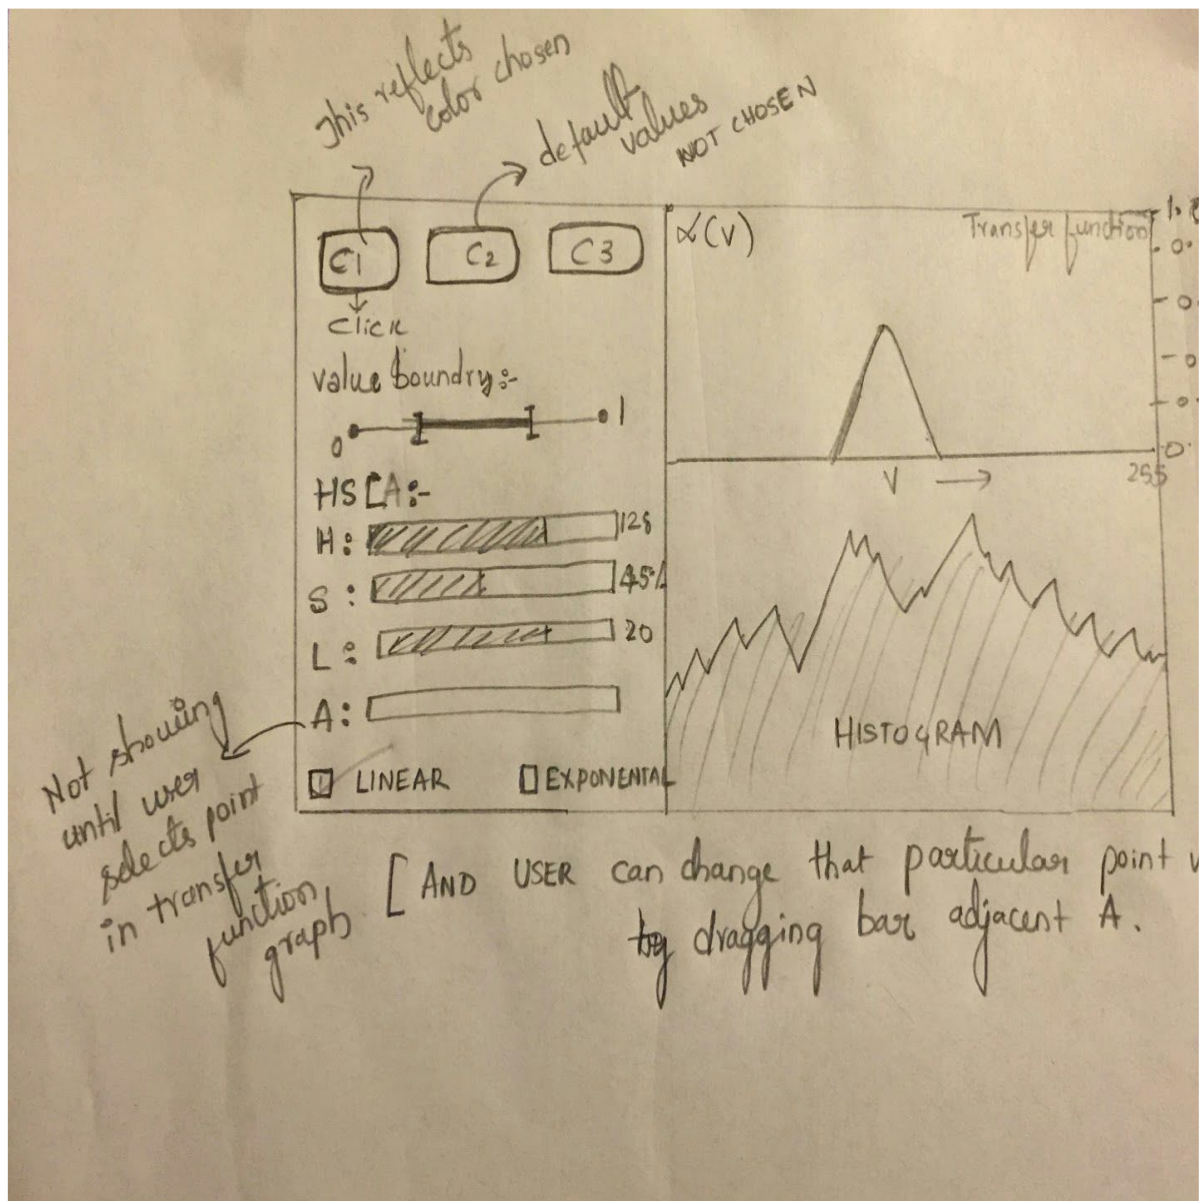 This reflects
color chosen
default
values
NOT CHOSEN
C1
C2
C3
click
value boundry:-
0
1
HSLA:-
H:
128
S:
45%
L:
20
A:
LINEAR
EXPONENTAL
α(v)
Transfer function
0.
0
0
0
0.
V
255
HISTOGRAM
Not showing
until user
selects point
in transfer
function
graph
[AND USER can change that particular point
by dragging bar adjacent A.